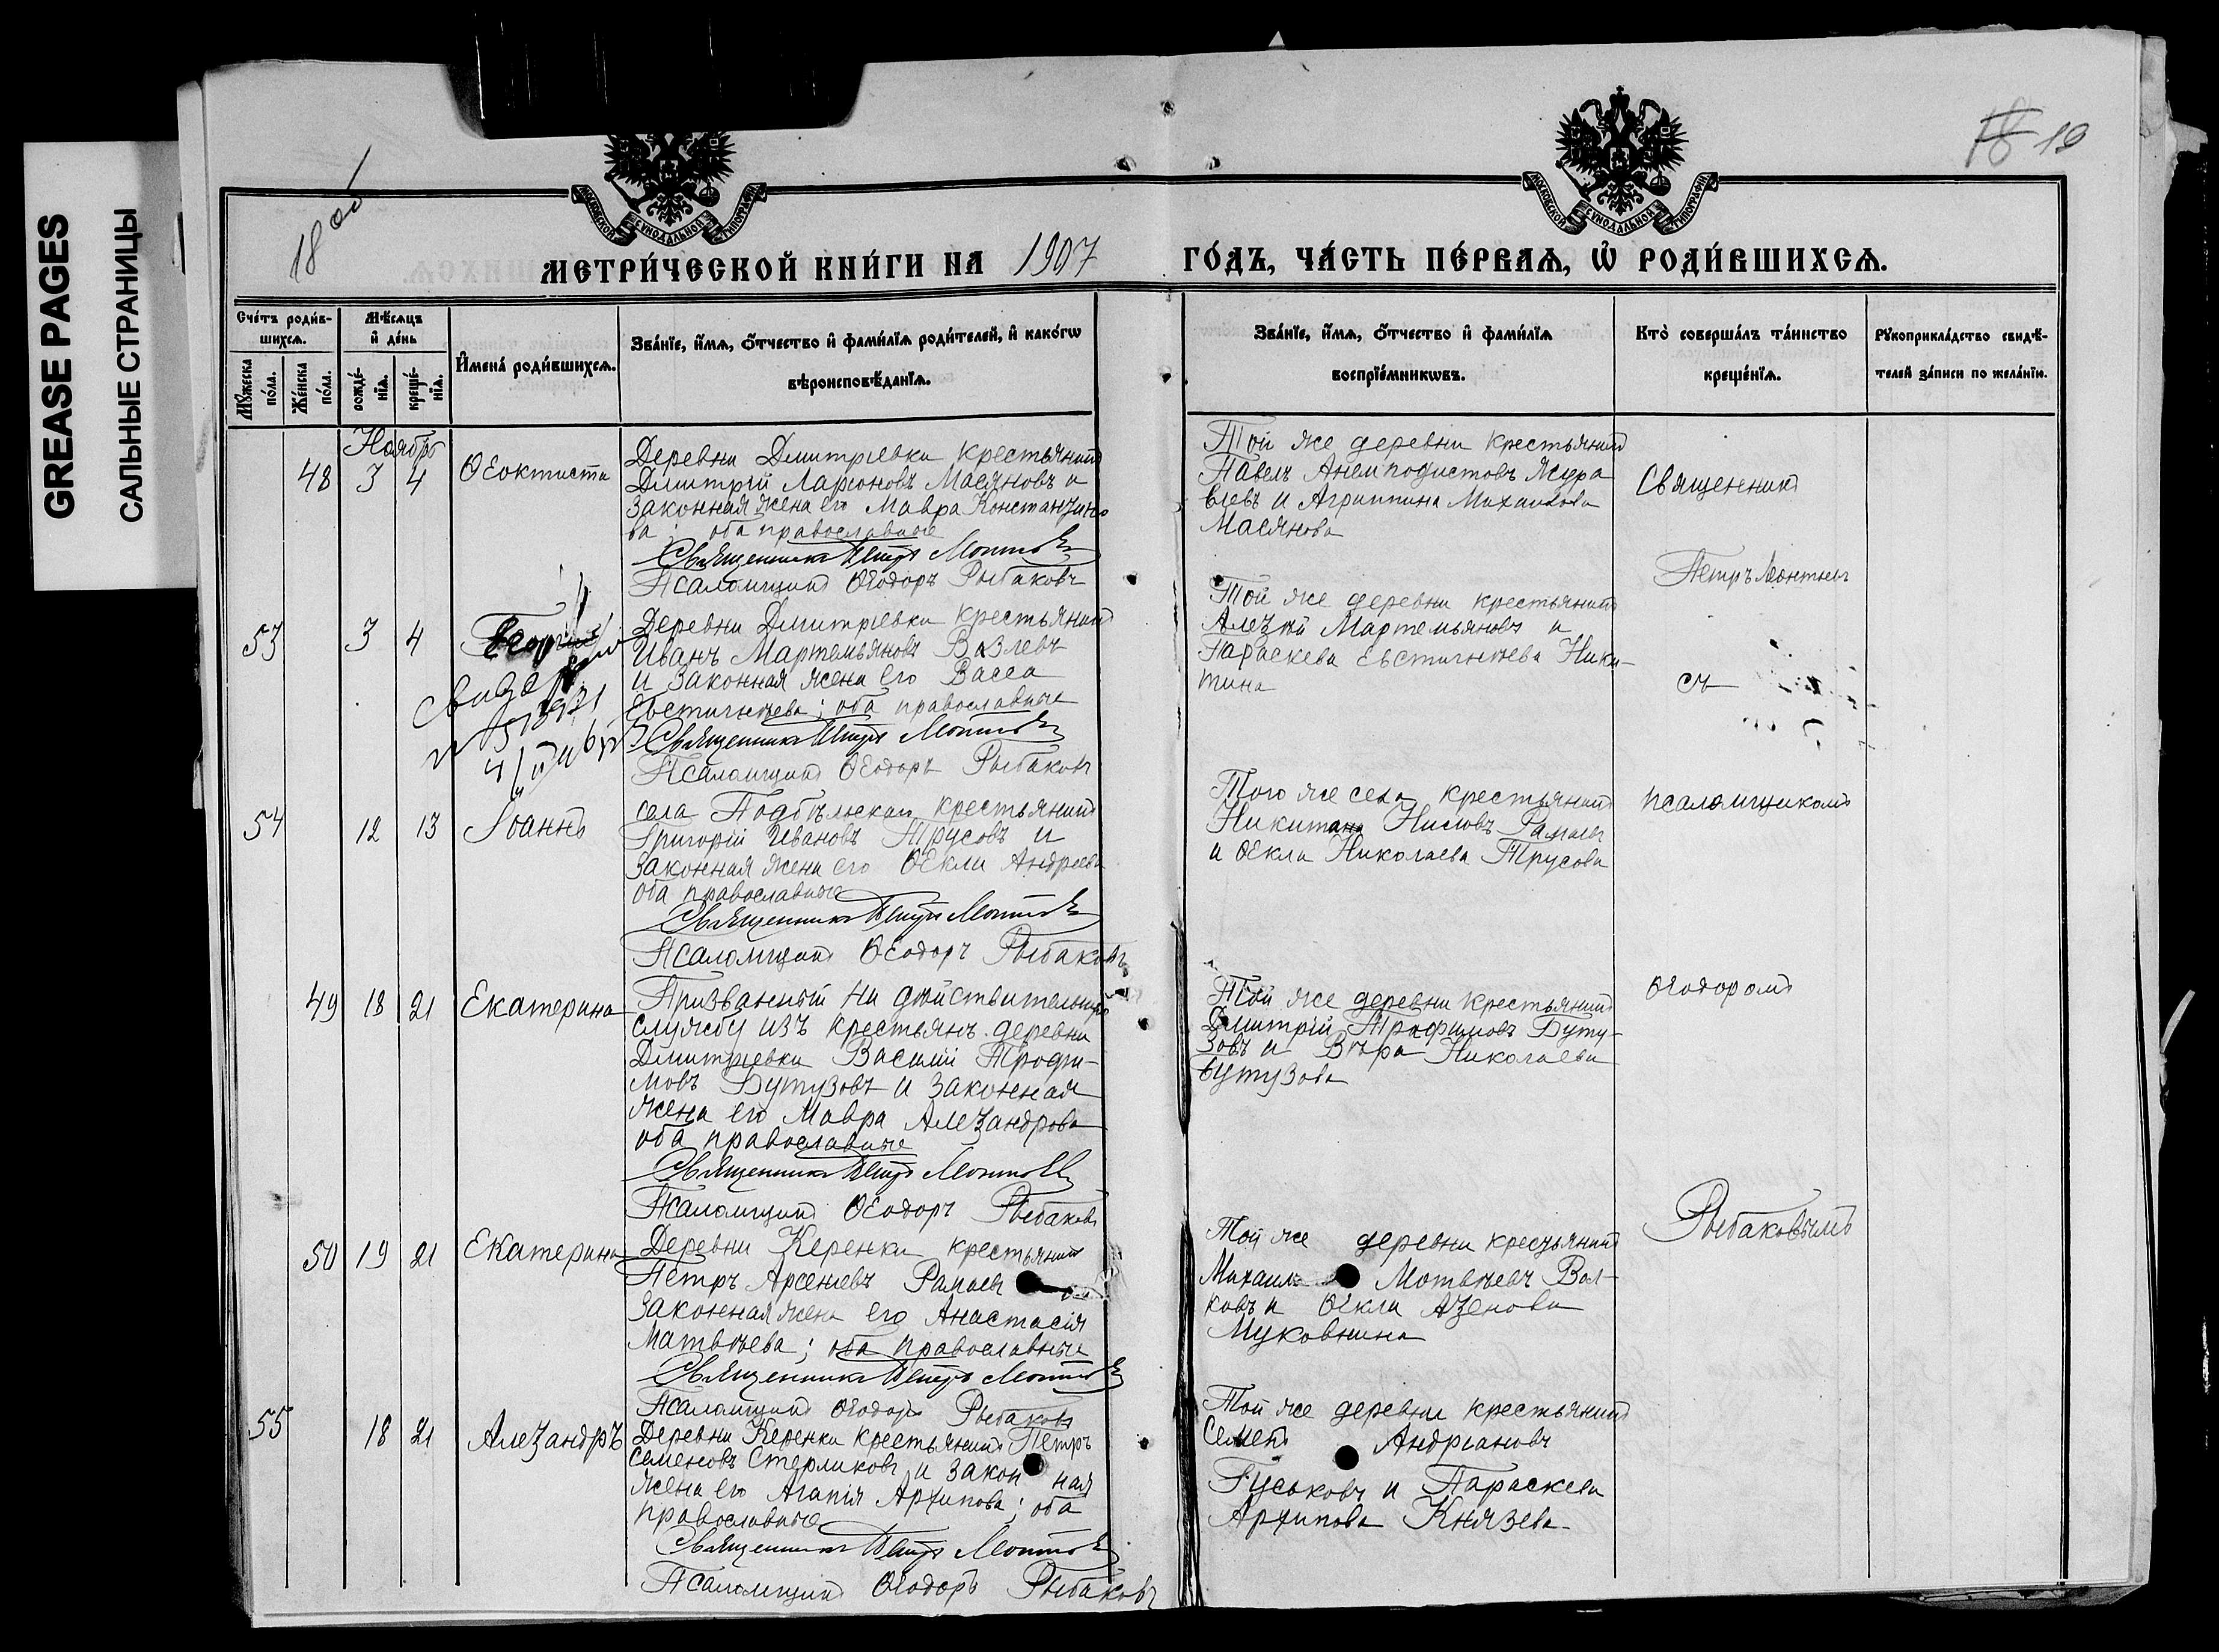 GREASE PAGES
САЛЬНЫЕ СТРАНИЦЫ
18 об
18 19
МОСКОВСКОЙ СѴНОДАЛЬНОЙ ТИПОГРАФІИ
МОСКОВСКОЙ СѴНОДАЛЬНОЙ ТИПОГРАФІИ
МЕТРИ́ЧЕСКОЙ КНИ́ГИ НА 1907 ГО́ДЪ, ЧА́СТЬ ПЕ́РВАѦ, Ѡ РОДИ́ВШИХСѦ.
Сче́тъ роди́в-
шихсѧ.
Мꙋ́жеска по́ла.
Же́нска по́ла.
Мѣ́сѧцъ и҆ де́нь
рожде́-
нїѧ.
креще́-
нїѧ.
И҆мена̀ роди́вшихсѧ.
Зва́нїе, и҆́мѧ, ѻ҆́тчество и҆ фами́лїѧ роди́телей, и҆ како́гѡ
вѣроисповѣ́данїѧ.
Зва́нїе, и҆́мѧ, ѻ҆́тчество и҆ фами́лїѧ
воспрїе́мникѡвъ.
Кто̀ соверша́лъ та́инство
креще́нїѧ.
Рꙋкоприкла́дство свидѣ́-
телей за́писи по жела́нїю.
Ноябрь
48 3 4 Ѳеоктиста
Деревни Дмитріевки крестьянинъ
Дмитрій Ларіоновъ Масяновъ и
законная жена его Мавра Константино
ва; оба православные
Священникъ Петръ
Псаломщикъ Ѳеодоръ Рыбаковъ
Той же деревни крестьянинъ
Павелъ Анемподистовъ Жура
влевъ и Агриппина Михайлова
Масянова
Священникъ
Петръ
53 3 4 Георгій
4
Деревни Дмитріевки крестьянинъ
Иванъ Мартемьяновъ
и законная жена его Васса
Евстигнѣева; оба православные
Священникъ Петръ
Псаломщикъ Ѳеодоръ Рыбаковъ
Той же деревни крестьянинъ
Алексѣй Мартемьяновъ и
Параскева Евстигнѣева Ники-
тина
съ
54 12 13 Іоаннъ
села Подбѣльскаго крестьянинъ
Григорій Ивановъ Трусовъ и
законная жена его Ѳекла Андреева
оба православные
Священникъ Петръ
Псаломщикъ Ѳеодоръ Рыбаковъ
Того же села крестьянинъ
Никита Ниловъ Рамаев
и Ѳекла Николаева Трусова
псаломщикомъ
49 18 21 Екатерина
Призванный на дѣйствительную
службу изъ крестьянъ деревни
Дмитріевки Василій Трофи-
мовъ Бутузовъ и законная
жена его Мавра Александрова
оба православные
Священникъ Петръ
Псаломщикъ Ѳеодоръ Рыбаковъ
Той же деревни крестьянинъ
Дмитрій Трофимовъ Буту-
зовъ и Вѣра Николаева
Бутузова
Ѳеодоромъ
50 19 21 Екатерина
Деревни Керенки крестьянинъ
Петръ Арсеніевъ Рамаевъ
законная жена его Анастасія
Матвѣева; оба православные
Священникъ Петръ
Псаломщикъ Ѳеодоръ Рыбаковъ
Той же деревни крестьянинъ
Михаилъ Матвѣевъ Вол-
ковъ и Ѳекла
Муковнина
Рыбаковымъ
55 18 21 Александръ
Деревни Керенки крестьянинъ Петръ
Семеновъ Стерликовъ и закон ная
жена его Агапія Архипова; оба
православные
Священникъ Петръ
Псаломщикъ Ѳеодоръ Рыбаковъ
Той же деревни крестьянинъ
Семенъ Андріановъ
Гуськовъ и Параскева
Архипова Князева